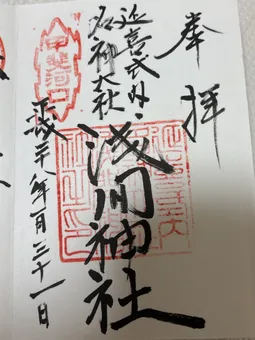 奉拝
延喜式内
名神大社
浅間神社
平成廿八年一月三十一日